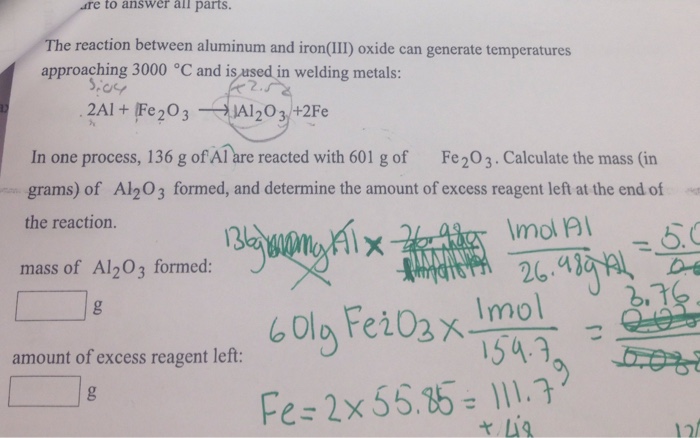 are to answer all parts.
The reaction between aluminum and iron(III) oxide can generate temperatures
approaching 3000 °C and is used in welding metals:
2Al + 1Fe2O3 → 1Al2O3 +2Fe
In one process, 136 g of Al are reacted with 601 g of Fe2O3. Calculate the mass (in
grams) of Al2O3 formed, and determine the amount of excess reagent left at the end of
the reaction.
136g Al x 1mol Al / 26.98g Al = 5.0
mass of Al2O3 formed:
g
601g Fe2O3 x 1mol / 159.7g = 3.76
amount of excess reagent left:
g
Fe = 2 x 55.85 = 111.7
+ 48